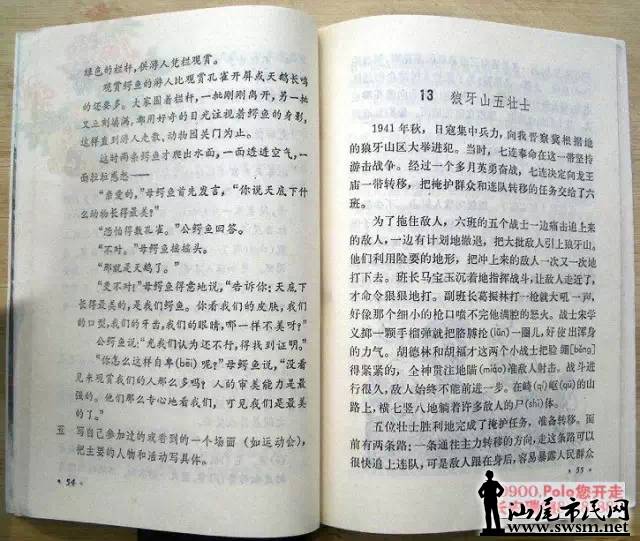 绿色的栏杆，供游人凭栏观赏。
观赏鳄鱼的游人比观赏孔雀开屏或天鹅长鸣
的还要多。大家围着栏杆，一批刚刚离开，另一批
又立刻填满，都用好奇的目光注视着鳄鱼的身影，
这样直到游人走散，动物园关门为止。
这时两条鳄鱼才爬出水面，一面透透空气，一
面拉拉感想——
“亲爱的，”母鳄鱼首先发言，“你说天底下什
么动物长得最美？”
“恐怕得数孔雀。”公鳄鱼回答。
“不对。”母鳄鱼摇摇头。
“那就是天鹅了。”
“更不对！”母鳄鱼得意地说，“告诉你：天底下
长得最美的，是我们鳄鱼。你看我们的皮肤，我们
的口型，我们的牙齿，我们的眼睛，哪一样不美呀？”
公鳄鱼说：“光我们认为还不行，得找到证明。”
“你怎么这样自卑（bēi）呢？”母鳄鱼说，“没看
见来观赏我们的人那么多吗？人的审美能力是最
强的。他们那么专心地看我们，可见我们是最美
的了。”
五 写自己参加过的或看到的一个场面（如运动会），
把主要的人物和活动写具体。
· 54 ·
13 狼牙山五壮士
1941年秋，日寇集中兵力，向我晋察冀根据地
的狼牙山区大举进犯。当时，七连奉命在这一带坚持
游击战争。经过一个多月英勇奋战，七连决定向龙王
庙一带转移，把掩护群众和连队转移的任务交给了六
班。
为了拖住敌人，六班的五个战士一边痛击追上来
的敌人，一边有计划地撤退，把大批敌人引上狼牙山。
他们利用险要的地形，把冲上来的敌人一次又一次地
打下去。班长马宝玉沉着地指挥战斗，让敌人走近了，
才命令狠狠地打。副班长葛振林打一枪就大吼一声，
好像那个细小的枪口喷不完他满腔的怒火。战士宋学
义掷一颗手榴弹就把胳膊抡(lūn)一圈儿，好使出浑身
的力气。胡德林和胡福才这两个小战士把脸绷[běng]
得紧紧的，全神贯注地瞄(miáo)准敌人射击。战斗进
行很久，敌人始终不能前进一步。在崎(qí)岖(qū)的山
路上，横七竖八地躺着许多敌人的尸(shī)体。
五位壮士胜利地完成了掩护任务，准备转移。面
前有两条路：一条通往主力转移的方向，走这条路可以
很快追上连队，可是敌人跟在身后，容易暴露人民群众
· 55 ·
0900,Polo您开走
汕尾市民网
www.swsm.net